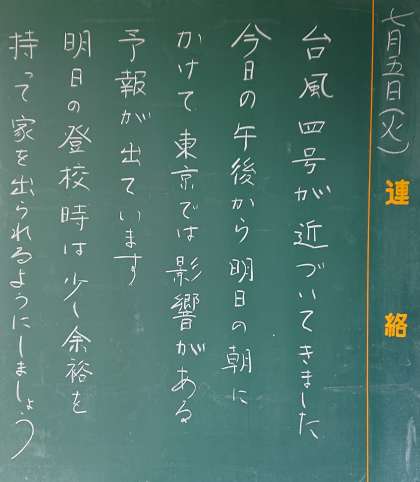 七月五日(火)
連絡
台風四号が近づいてきました
今日の午後から明日の朝に
かけて東京では影響がある
予報が出ています
明日の登校時は少し余裕を
持って家を出られるようにしましょう